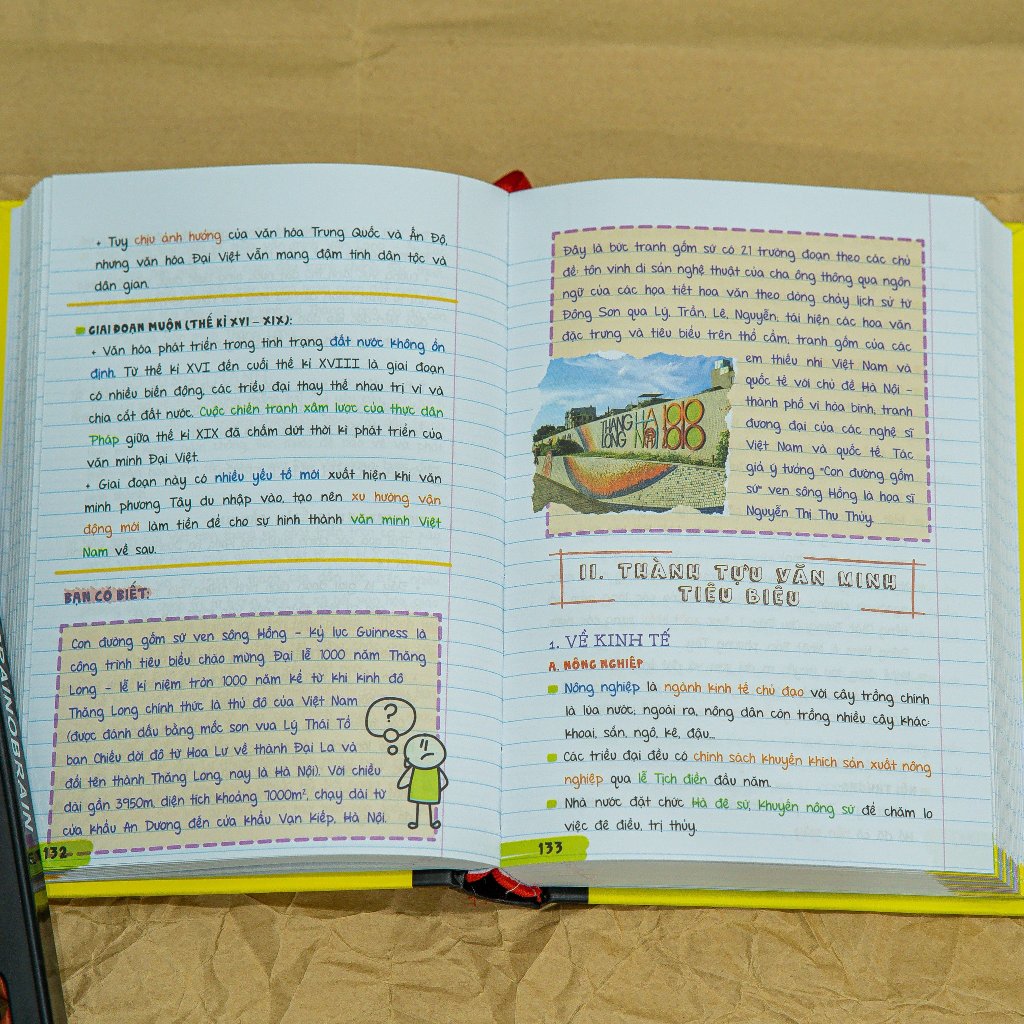 + Tuy chịu ảnh hưởng của văn hóa Trung Quốc và Ấn Độ,
nhưng văn hóa Đại Việt vẫn mang đậm tính dân tộc và
dân gian.
GIAI ĐOẠN MUỘN (THẾ KỈ XVI – XIX):
+ Văn hóa phát triển trong tình trạng đất nước không ổn
định. Từ thế kỉ XVI đến cuối thế kỉ XVIII là giai đoạn
có nhiều biến động, các triều đại thay thế nhau trị vì và
chia cắt đất nước. Cuộc chiến tranh xâm lược của thực dân
Pháp giữa thế kỉ XIX đã chấm dứt thời kì phát triển của
văn minh Đại Việt.
+ Giai đoạn này có nhiều yếu tố mới xuất hiện khi văn
minh phương Tây du nhập vào, tạo nên xu hướng vận
động mới làm tiền đề cho sự hình thành văn minh Việt
Nam về sau.
BẠN CÓ BIẾT:
Con đường gốm sứ ven sông Hồng – kỷ lục Guinness là
công trình tiêu biểu chào mừng Đại lễ 1000 năm Thăng
Long – lễ kỉ niệm tròn 1000 năm kể từ khi kinh đô
Thăng Long chính thức là thủ đô của Việt Nam
(được đánh dấu bằng mốc son vua Lý Thái Tổ
ban Chiếu dời đô từ Hoa Lư về thành Đại La và
đổi tên thành Thăng Long, nay là Hà Nội). Với chiều
dài gần 3950m, diện tích khoảng 7000m², chạy dài từ
cửa khẩu An Dương đến cửa khẩu Vạn Kiếp, Hà Nội.
?
132
Đây là bức tranh gốm sứ có 21 trường đoạn theo các chủ
đề: tôn vinh di sản nghệ thuật của cha ông thông qua ngôn
ngữ của các họa tiết hoa văn theo dòng chảy lịch sử từ
Đông Sơn qua Lý, Trần, Lê, Nguyễn; tái hiện các hoa văn
đặc trưng và tiêu biểu trên thổ cẩm, tranh gốm của các
em thiếu nhi Việt Nam và
quốc tế với chủ đề Hà Nội –
thành phố vì hòa bình, tranh
đương đại của các nghệ sĩ
Việt Nam và quốc tế. Tác
giả ý tưởng "Con đường gốm
sứ" ven sông Hồng là họa sĩ
Nguyễn Thị Thu Thủy.
THANG
LONG
HA
NOI
II. THÀNH TỰU VĂN MINH
TIÊU BIỂU
1. VỀ KINH TẾ
A. NÔNG NGHIỆP
Nông nghiệp là ngành kinh tế chủ đạo với cây trồng chính
là lúa nước; ngoài ra, nông dân còn trồng nhiều cây khác:
khoai, sắn, ngô, kê, đậu...
Các triều đại đều có chính sách khuyến khích sản xuất nông
nghiệp qua lễ Tịch điền đầu năm.
Nhà nước đặt chức Hà đê sứ, Khuyến nông sứ để chăm lo
việc đê điều, trị thủy.
133